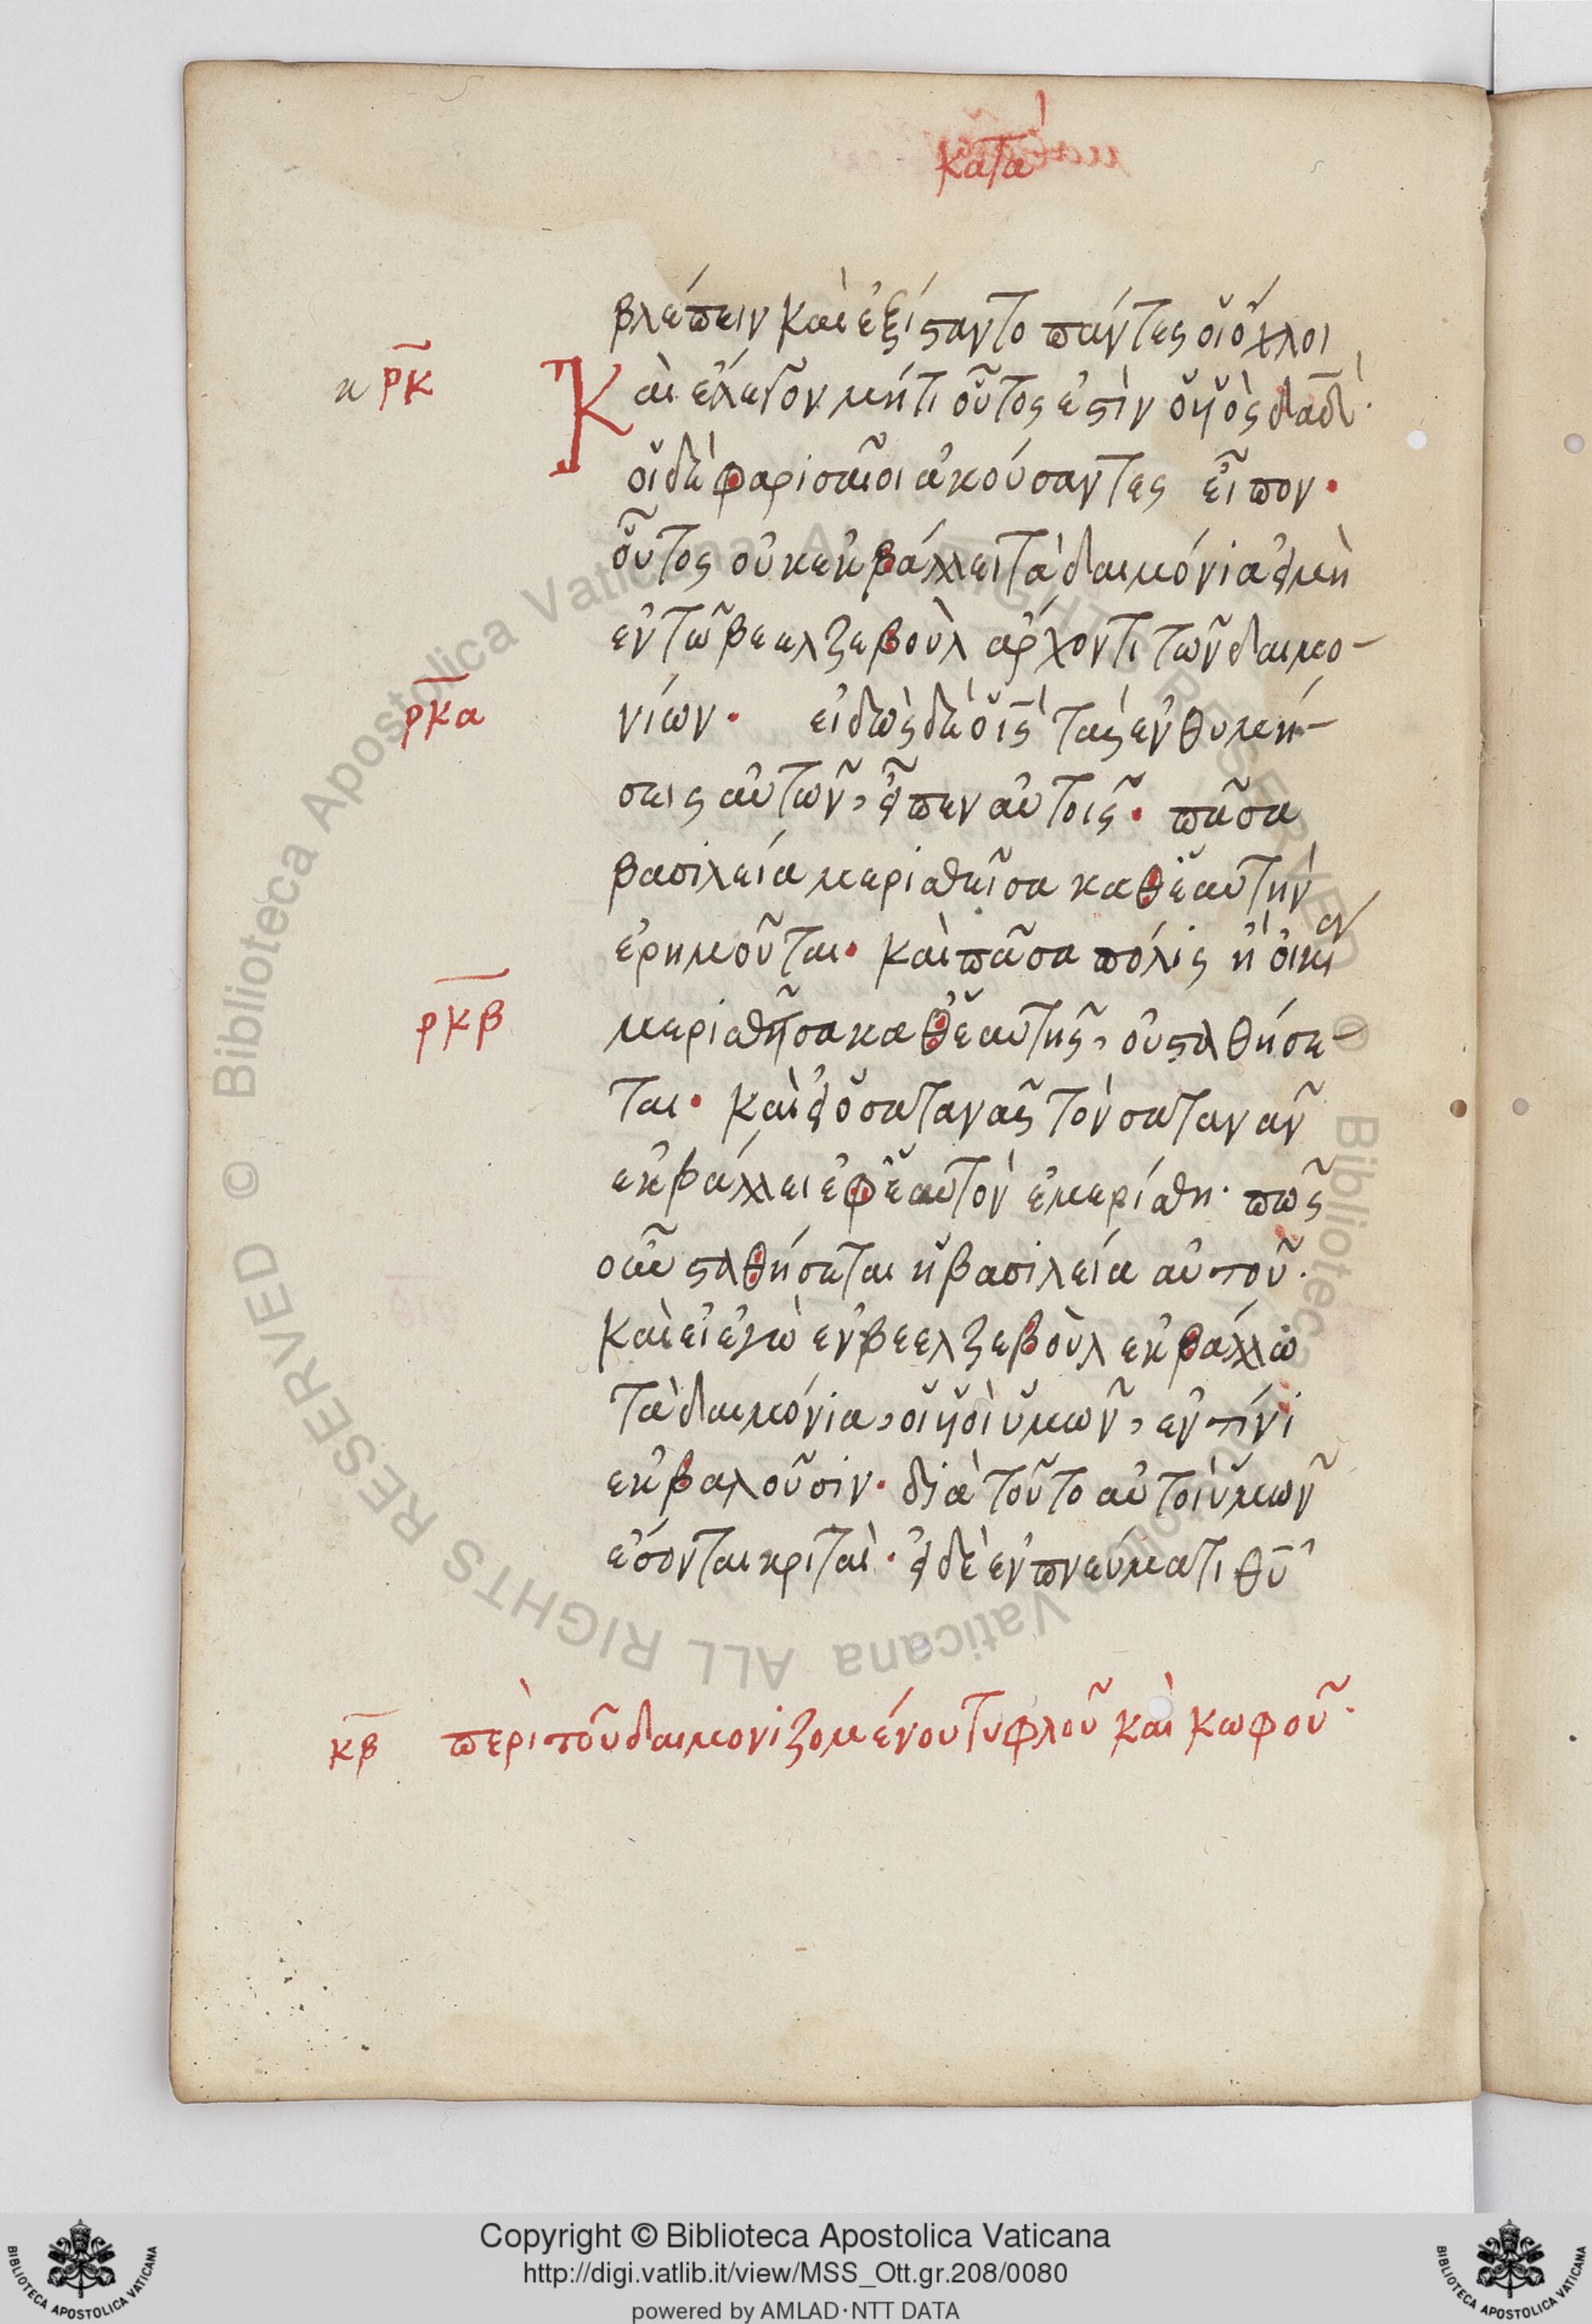 κατὰ
βλέπειν καὶ ἐξίσταντο πάντες οἱ ὄχλοι
κ ρκ Καὶ ἔλεγον μήτι οὗτος ἐστὶν ὁ υἱὸς δαδ·
οἱ δὲ φαρισαῖοι ἀκούσαντες εἶπον·
οὗτος οὐκ ἐκβάλλει τὰ δαιμόνια εἰ μὴ
ἐν τῶ βεελζεβοὺλ ἄρχοντι τῶν δαιμο-
ρκα νίων· εἰδὼς δὲ ὁ ις τὰς ἐνθυμή-
σεις αὐτῶν, εἶπεν αὐτοῖς· πᾶσα
βασιλεία μερισθεῖσα καθ' ἑαυτὴν
ἐρημοῦται· καὶ πᾶσα πόλις ἢ οἰκία
ρκβ μερισθῆσα καθ' ἑαυτῆς, οὐ σταθήσε-
ται· καὶ εἰ ὁ σατανᾶς τὸν σατανᾶν
ἐκβάλλει ἐφ' ἑαυτὸν ἐμερίσθη· πῶς
οὖν σταθήσεται ἡ βασιλεία αὐτοῦ·
καὶ εἰ ἐγὼ ἐν βεελζεβοὺλ ἐκβάλλω
τὰ δαιμόνια, οἱ υἱοὶ ὑμῶν, ἐν τίνι
ἐκβαλοῦσιν· διὰ τοῦτο αὐτοὶ ὑμῶν
ἔσονται κριταὶ· εἰ δὲ ἐν πνεύματι θυ
κβ περὶ τοῦ δαιμονιζομένου τυφλοῦ καὶ κωφοῦ·
Copyright © Biblioteca Apostolica Vaticana
http://digi.vatlib.it/view/MSS_Ott.gr.208/0080
powered by AMLAD·NTT DATA